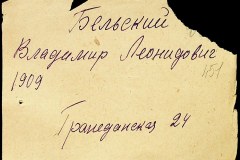 Бельский
Владимир Леонидович
1909
451
Гражданская 24